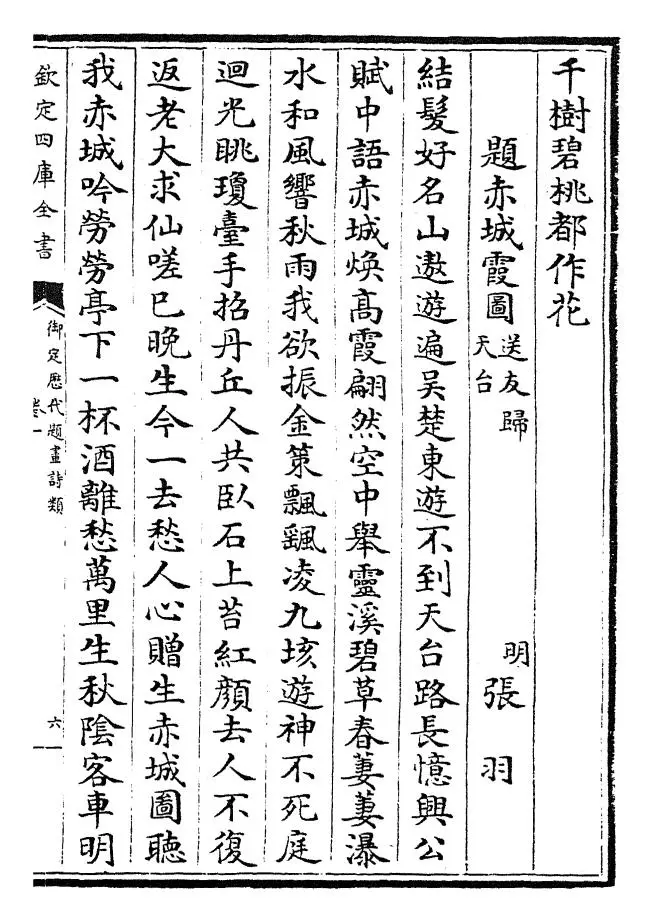 千樹碧桃都作花
題赤城霞圖送友歸天台 明 張羽
結髮好名山遨遊遍吳楚東遊不到天台路長憶興公
賦中語赤城煥高霞翩然空中舉靈溪碧草春萋萋瀑
水和風響秋雨我欲振金策飄飄凌九垓遊神不死庭
迴光眺瓊臺手招丹丘人共臥石上苔紅顔去人不復
返老大求仙嗟已晚生今一去愁人心贈生赤城圖聽
我赤城吟勞勞亭下一杯酒離愁萬里生秋陰客車明
欽定四庫全書
御定歷代題畫詩類
卷一
六